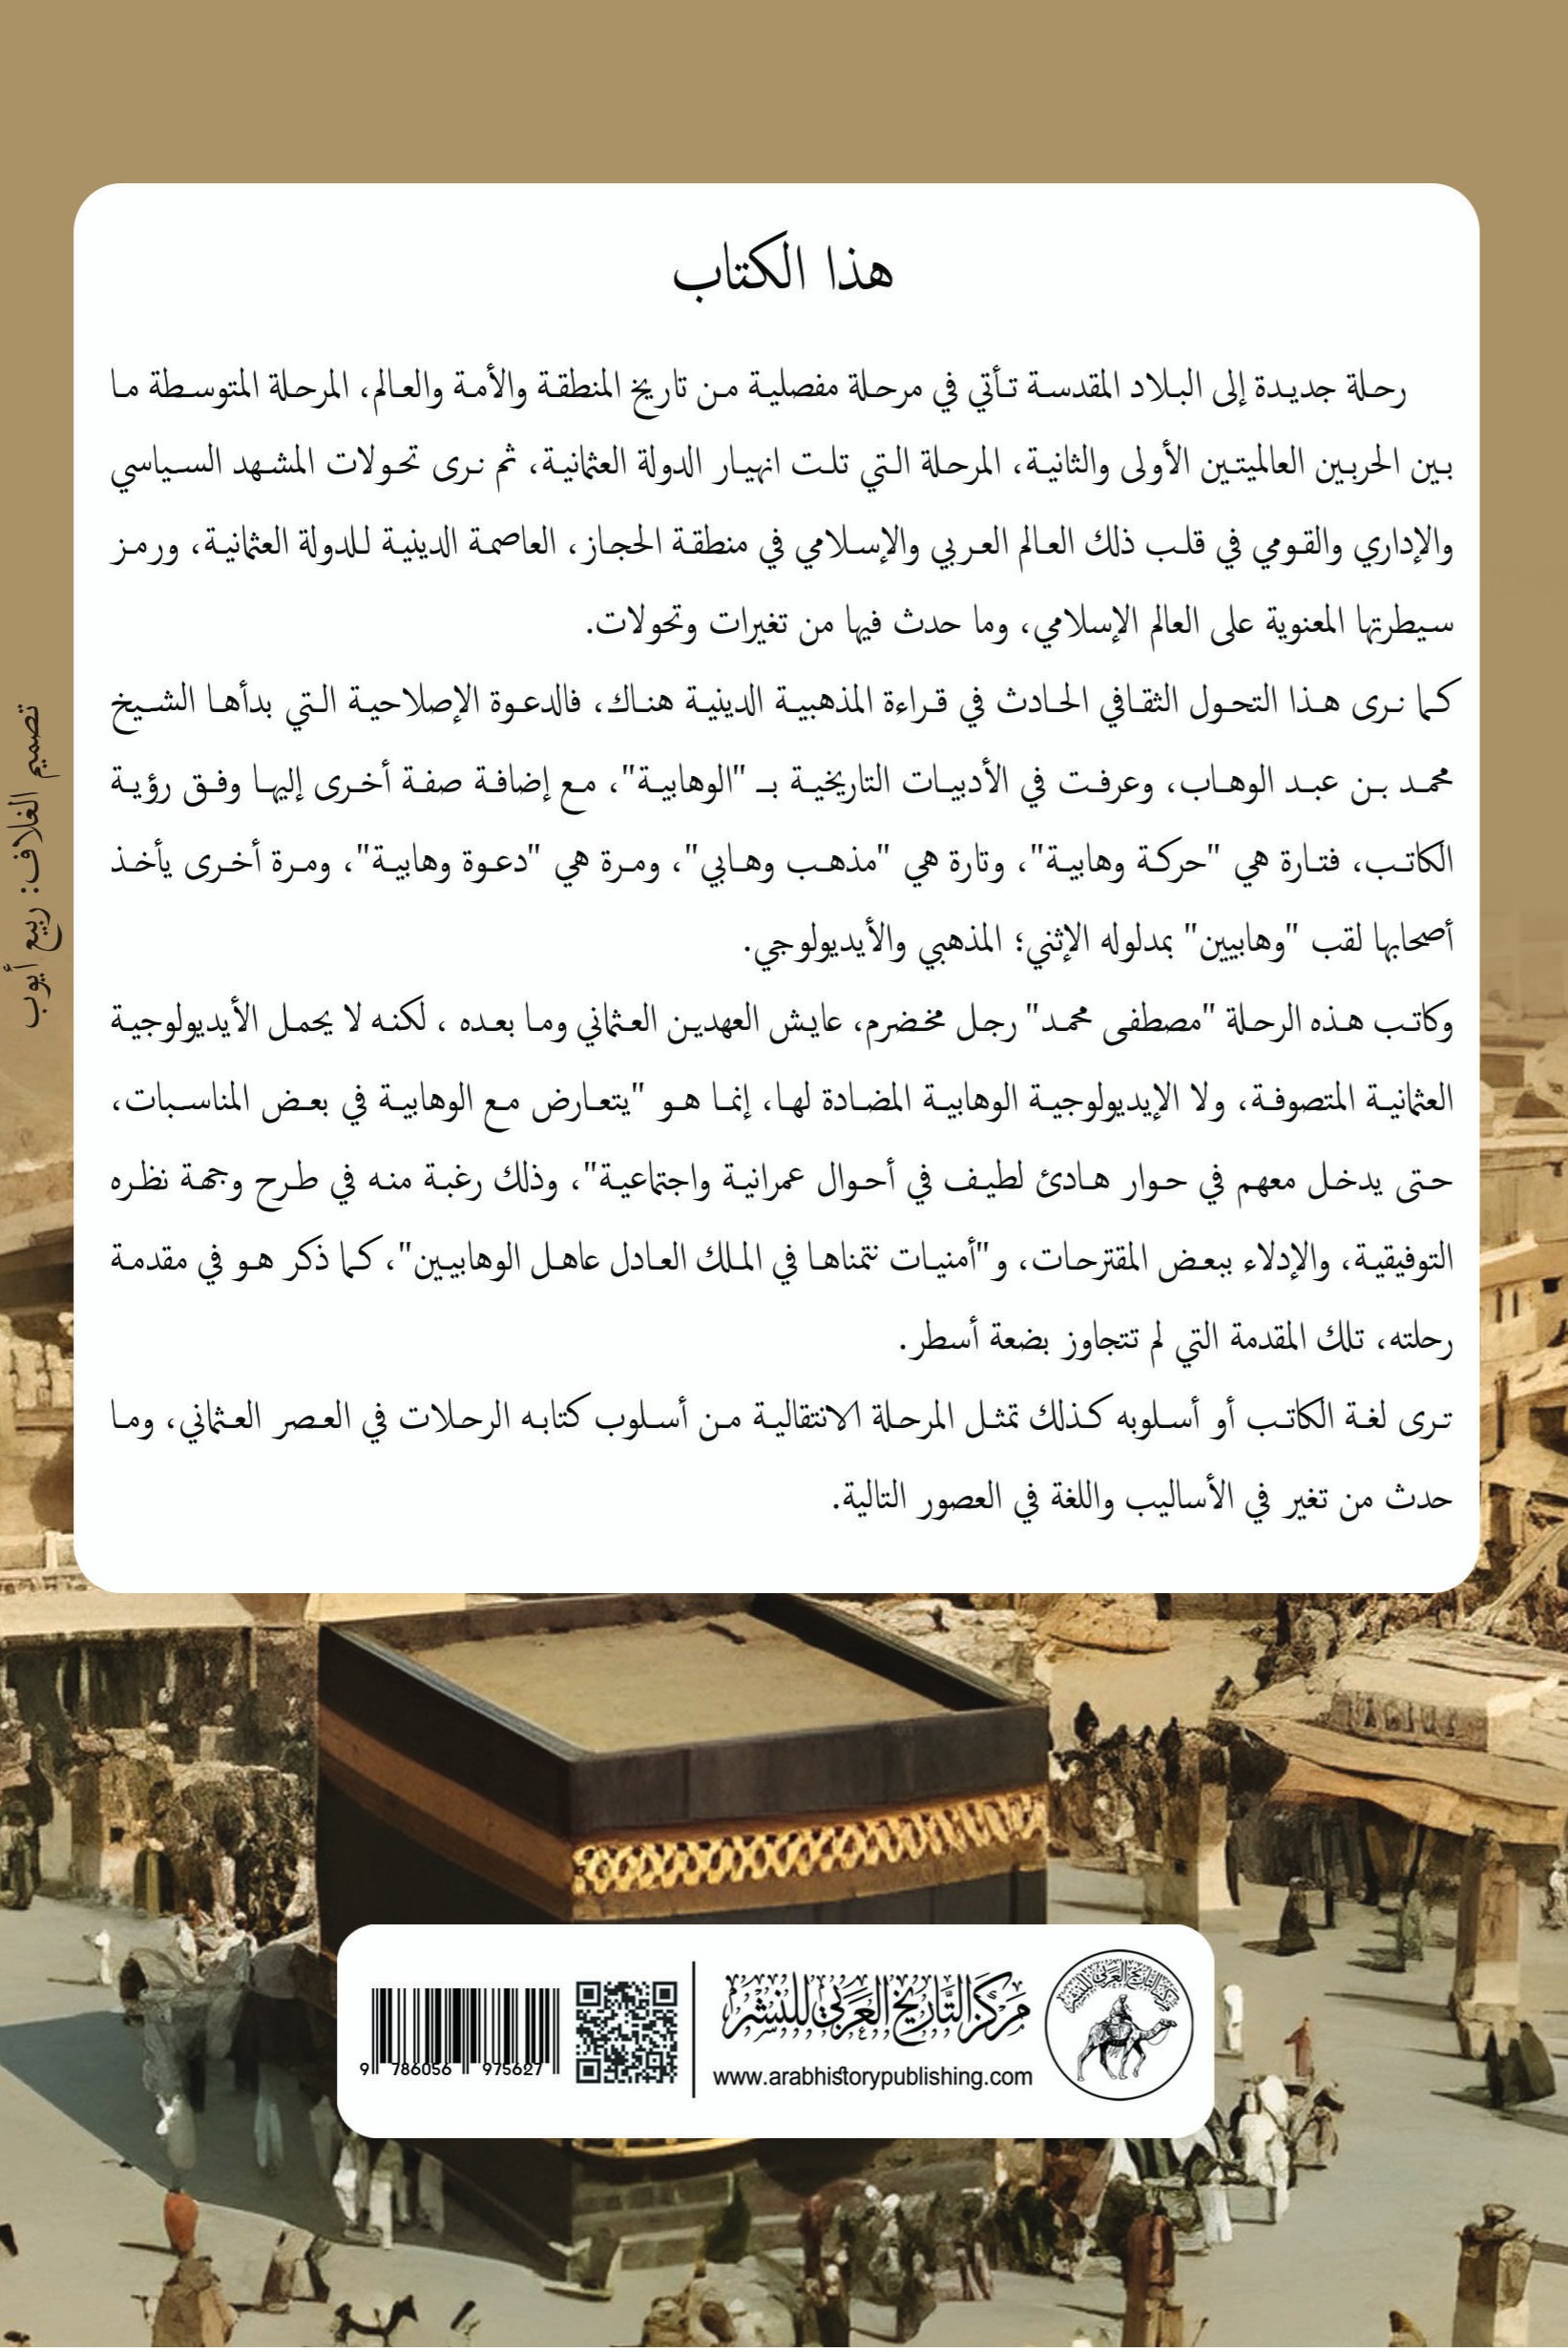 هذا الكتاب
رحلة جديدة إلى البلاد المقدسة تأتي في مرحلة مفصلية من تاريخ المنطقة والأمة والعالم، المرحلة المتوسطة ما
بين الحربين العالميتين الأولى والثانية، المرحلة التي تلت انهيار الدولة العثمانية، ثم نرى تحولات المشهد السياسي
والإداري والقومي في قلب ذلك العالم العربي والإسلامي في منطقة الحجاز، العاصمة الدينية للدولة العثمانية، ورمز
سيطرتها المعنوية على العالم الإسلامي، وما حدث فيها من تغيرات وتحولات.
كما نرى هذا التحول الثقافي الحادث في قراءة المذهبية الدينية هناك، فالدعوة الإصلاحية التي بدأها الشيخ
محمد بن عبد الوهاب، وعرفت في الأدبيات التاريخية بـ "الوهابية"، مع إضافة صفة أخرى إليها وفق رؤية
الكاتب، فتارة هي "حركة وهابية"، وتارة هي "مذهب وهابي"، ومرة هي "دعوة وهابية"، ومرة أخرى يأخذ
أصحابها لقب "وهابيين" بمدلوله الإثني؛ المذهبي والأيديولوجي.
وكاتب هذه الرحلة "مصطفى محمد" رجل مخضرم، عايش العهدين العثماني وما بعده ، لكنه لا يحمل الأيديولوجية
العثمانية المتصوفة، ولا الإيديولوجية الوهابية المضادة لها، إنما هو "يتعارض مع الوهابية في بعض المناسبات،
حتى يدخل معهم في حوار هادئ لطيف في أحوال عمرانية واجتماعية"، وذلك رغبة منه في طرح وجهة نظره
التوفيقية، والإدلاء ببعض المقترحات، و"أمنيات نتمناها في الملك العادل عاهل الوهابيين"، كما ذكر هو في مقدمة
رحلته، تلك المقدمة التي لم تتجاوز بضعة أسطر.
ترى لغة الكاتب أو أسلوبه كذلك تمثل المرحلة الانتقالية من أسلوب كتابه الرحلات في العصر العثماني، وما
حدث من تغير في الأساليب واللغة في العصور التالية.
تصميم الغلاف: ربيع أيوب
مركز التاريخ العربي للنشر
مَركَز التَّاريخ العَرَبي للنَشْر
www.arabhistorypublishing.com
9 786056 975627